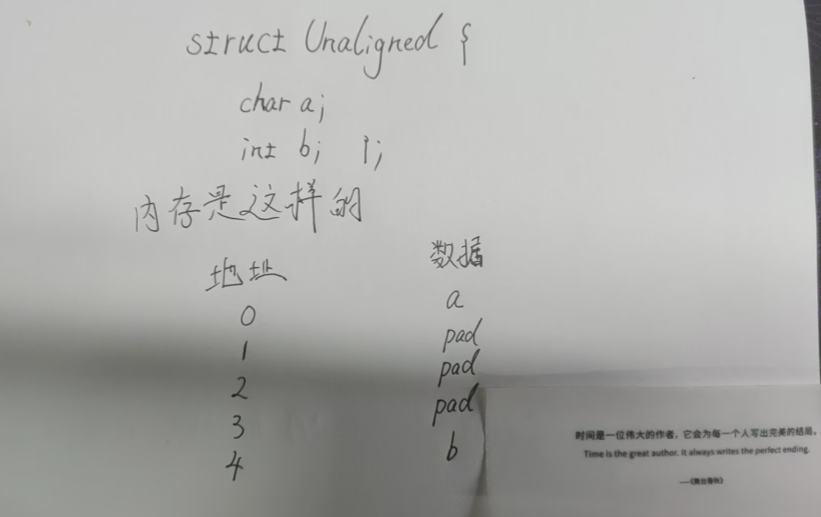 struct Unaligned {
char a;
int b; };
内存是这样的
地址 数据
0 a
1 pad
2 pad
3 pad
4 b
时间是一位伟大的作者，它会为每一个人写出完美的结局。
Time is the great author. It always writes the perfect ending.